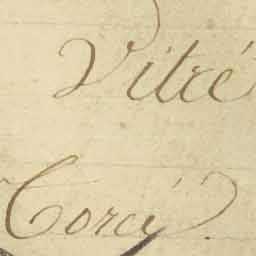 Vitré
Torcé.